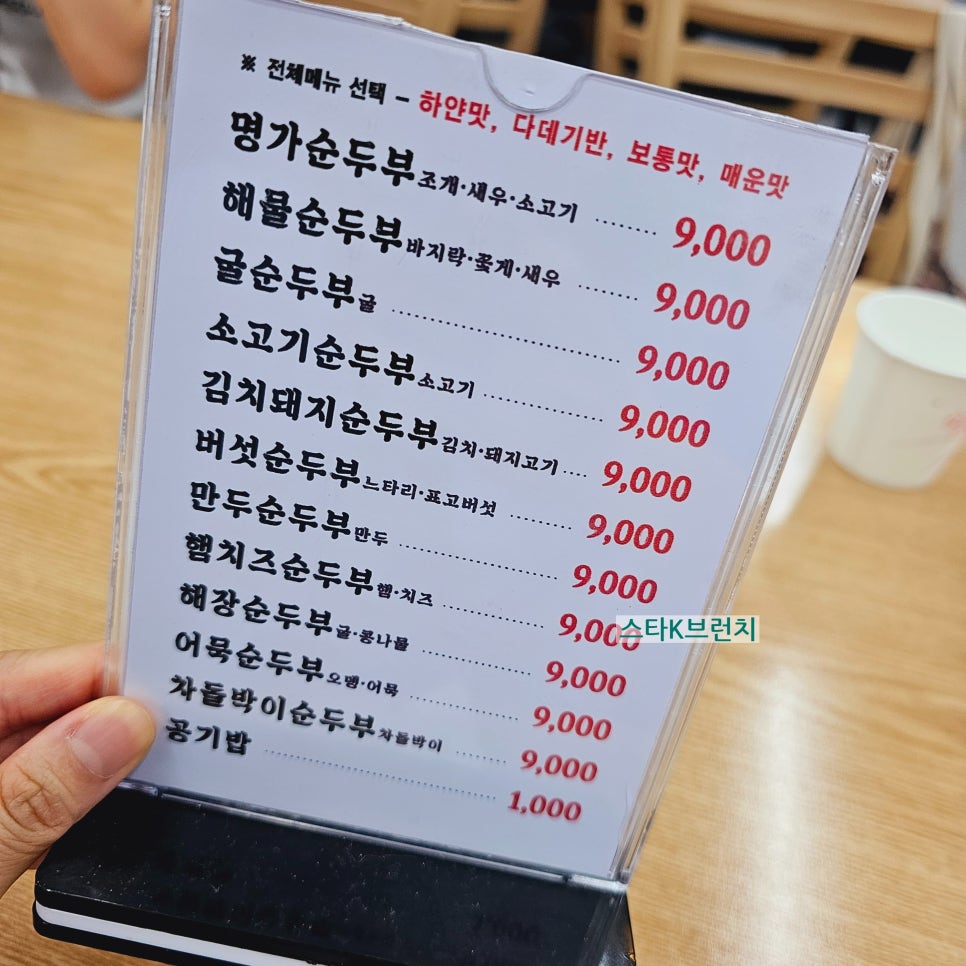 ※ 전체메뉴 선택 - 하얀맛, 다데기반, 보통맛, 매운맛
명가순두부 조개·새우·소고기 ........ 9,000
해물순두부 바지락·꽃게·새우 ........ 9,000
굴순두부 굴 ........ 9,000
소고기순두부 소고기 ........ 9,000
김치돼지순두부 김치·돼지고기 .... 9,000
버섯순두부 느타리·표고버섯 ........ 9,000
만두순두부 만두 ........ 9,000
햄치즈순두부 햄·치즈 ........ 9,000
해장순두부 굴·콩나물 ........ 9,000
어묵순두부 오뎅·어묵 ........ 9,000
차돌박이순두부 차돌박이 ........ 9,000
공기밥 ........ 1,000
스타K브런치